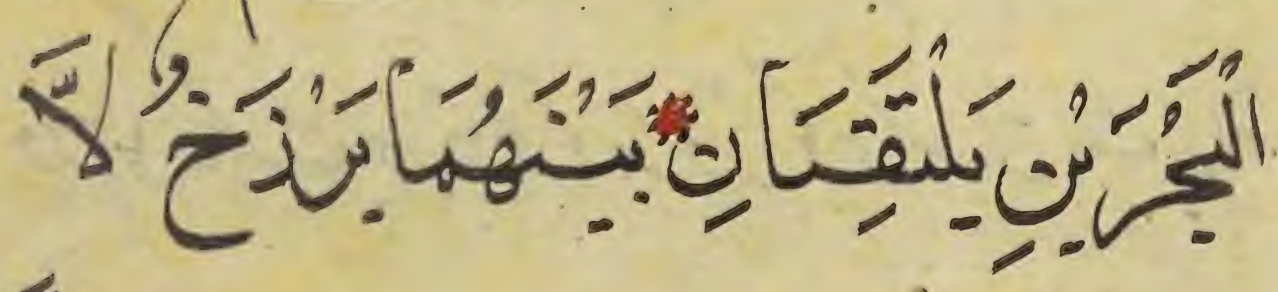 الْبَحْرَيْنِ يَلْتَقِيَانِ * بَيْنَهُمَا بَرْزَخٌ لَّا